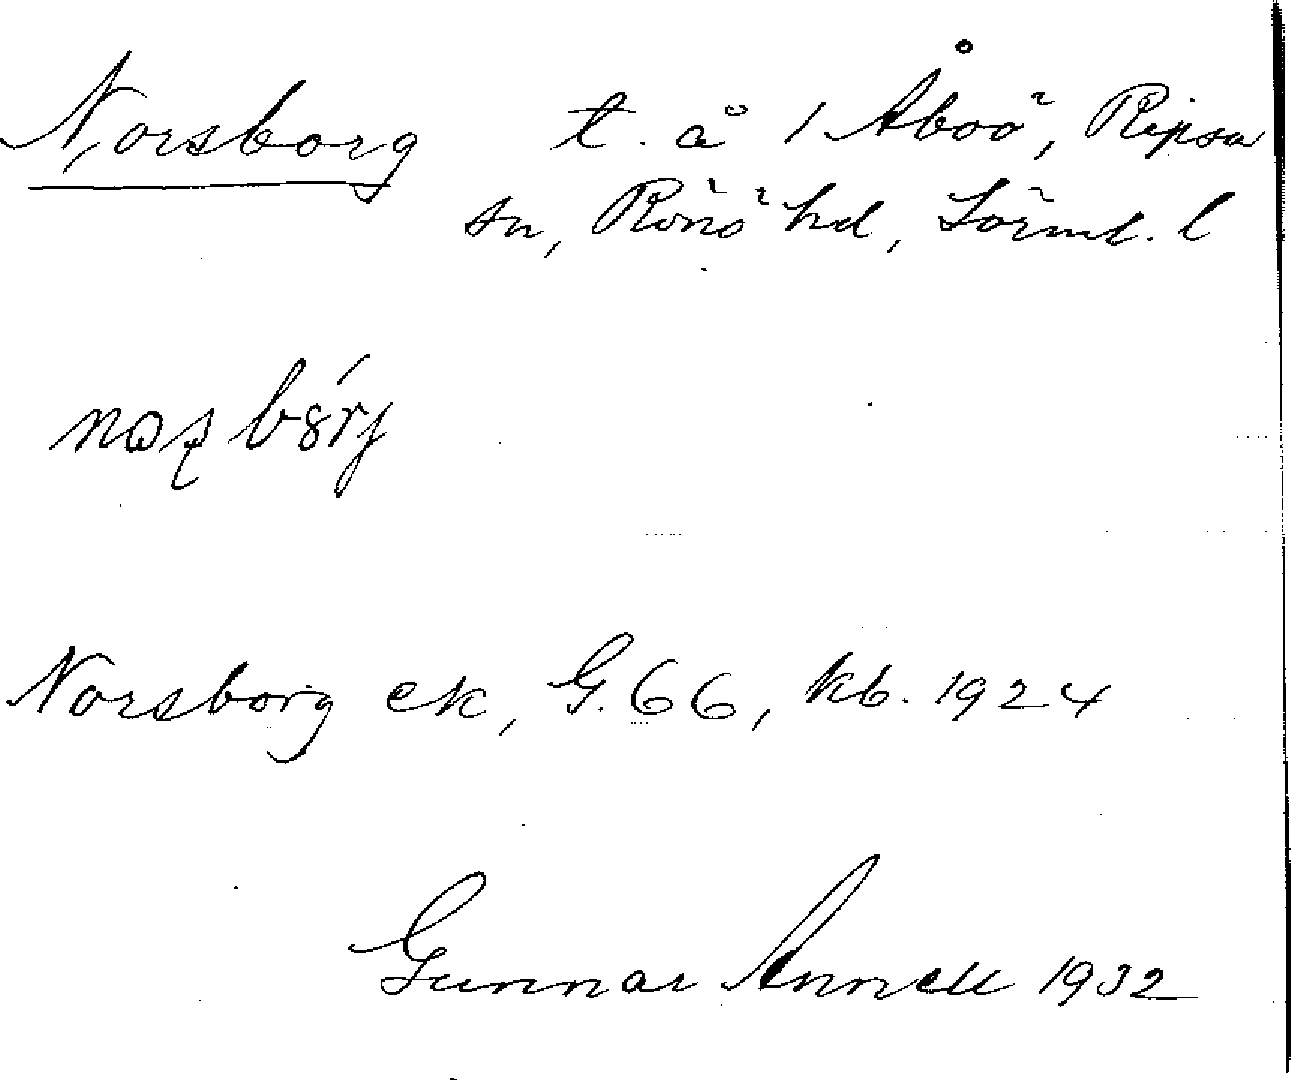 Norsborg t. å 1 Åboö, Ripsa
sn, Rönö hd, Sörml. l
Norsborg ek, G. 66, kb. 1924
Gunnar Annell 1932